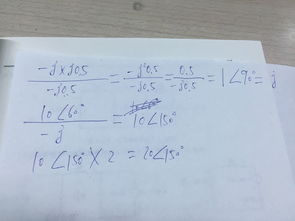 -j×j0.5/-j0.5 = -j²0.5/-j0.5 = 0.5/-j0.5 = 1∠90° = j
10∠60°/-j = 10∠150°
10∠150° × 2 = 20∠150°